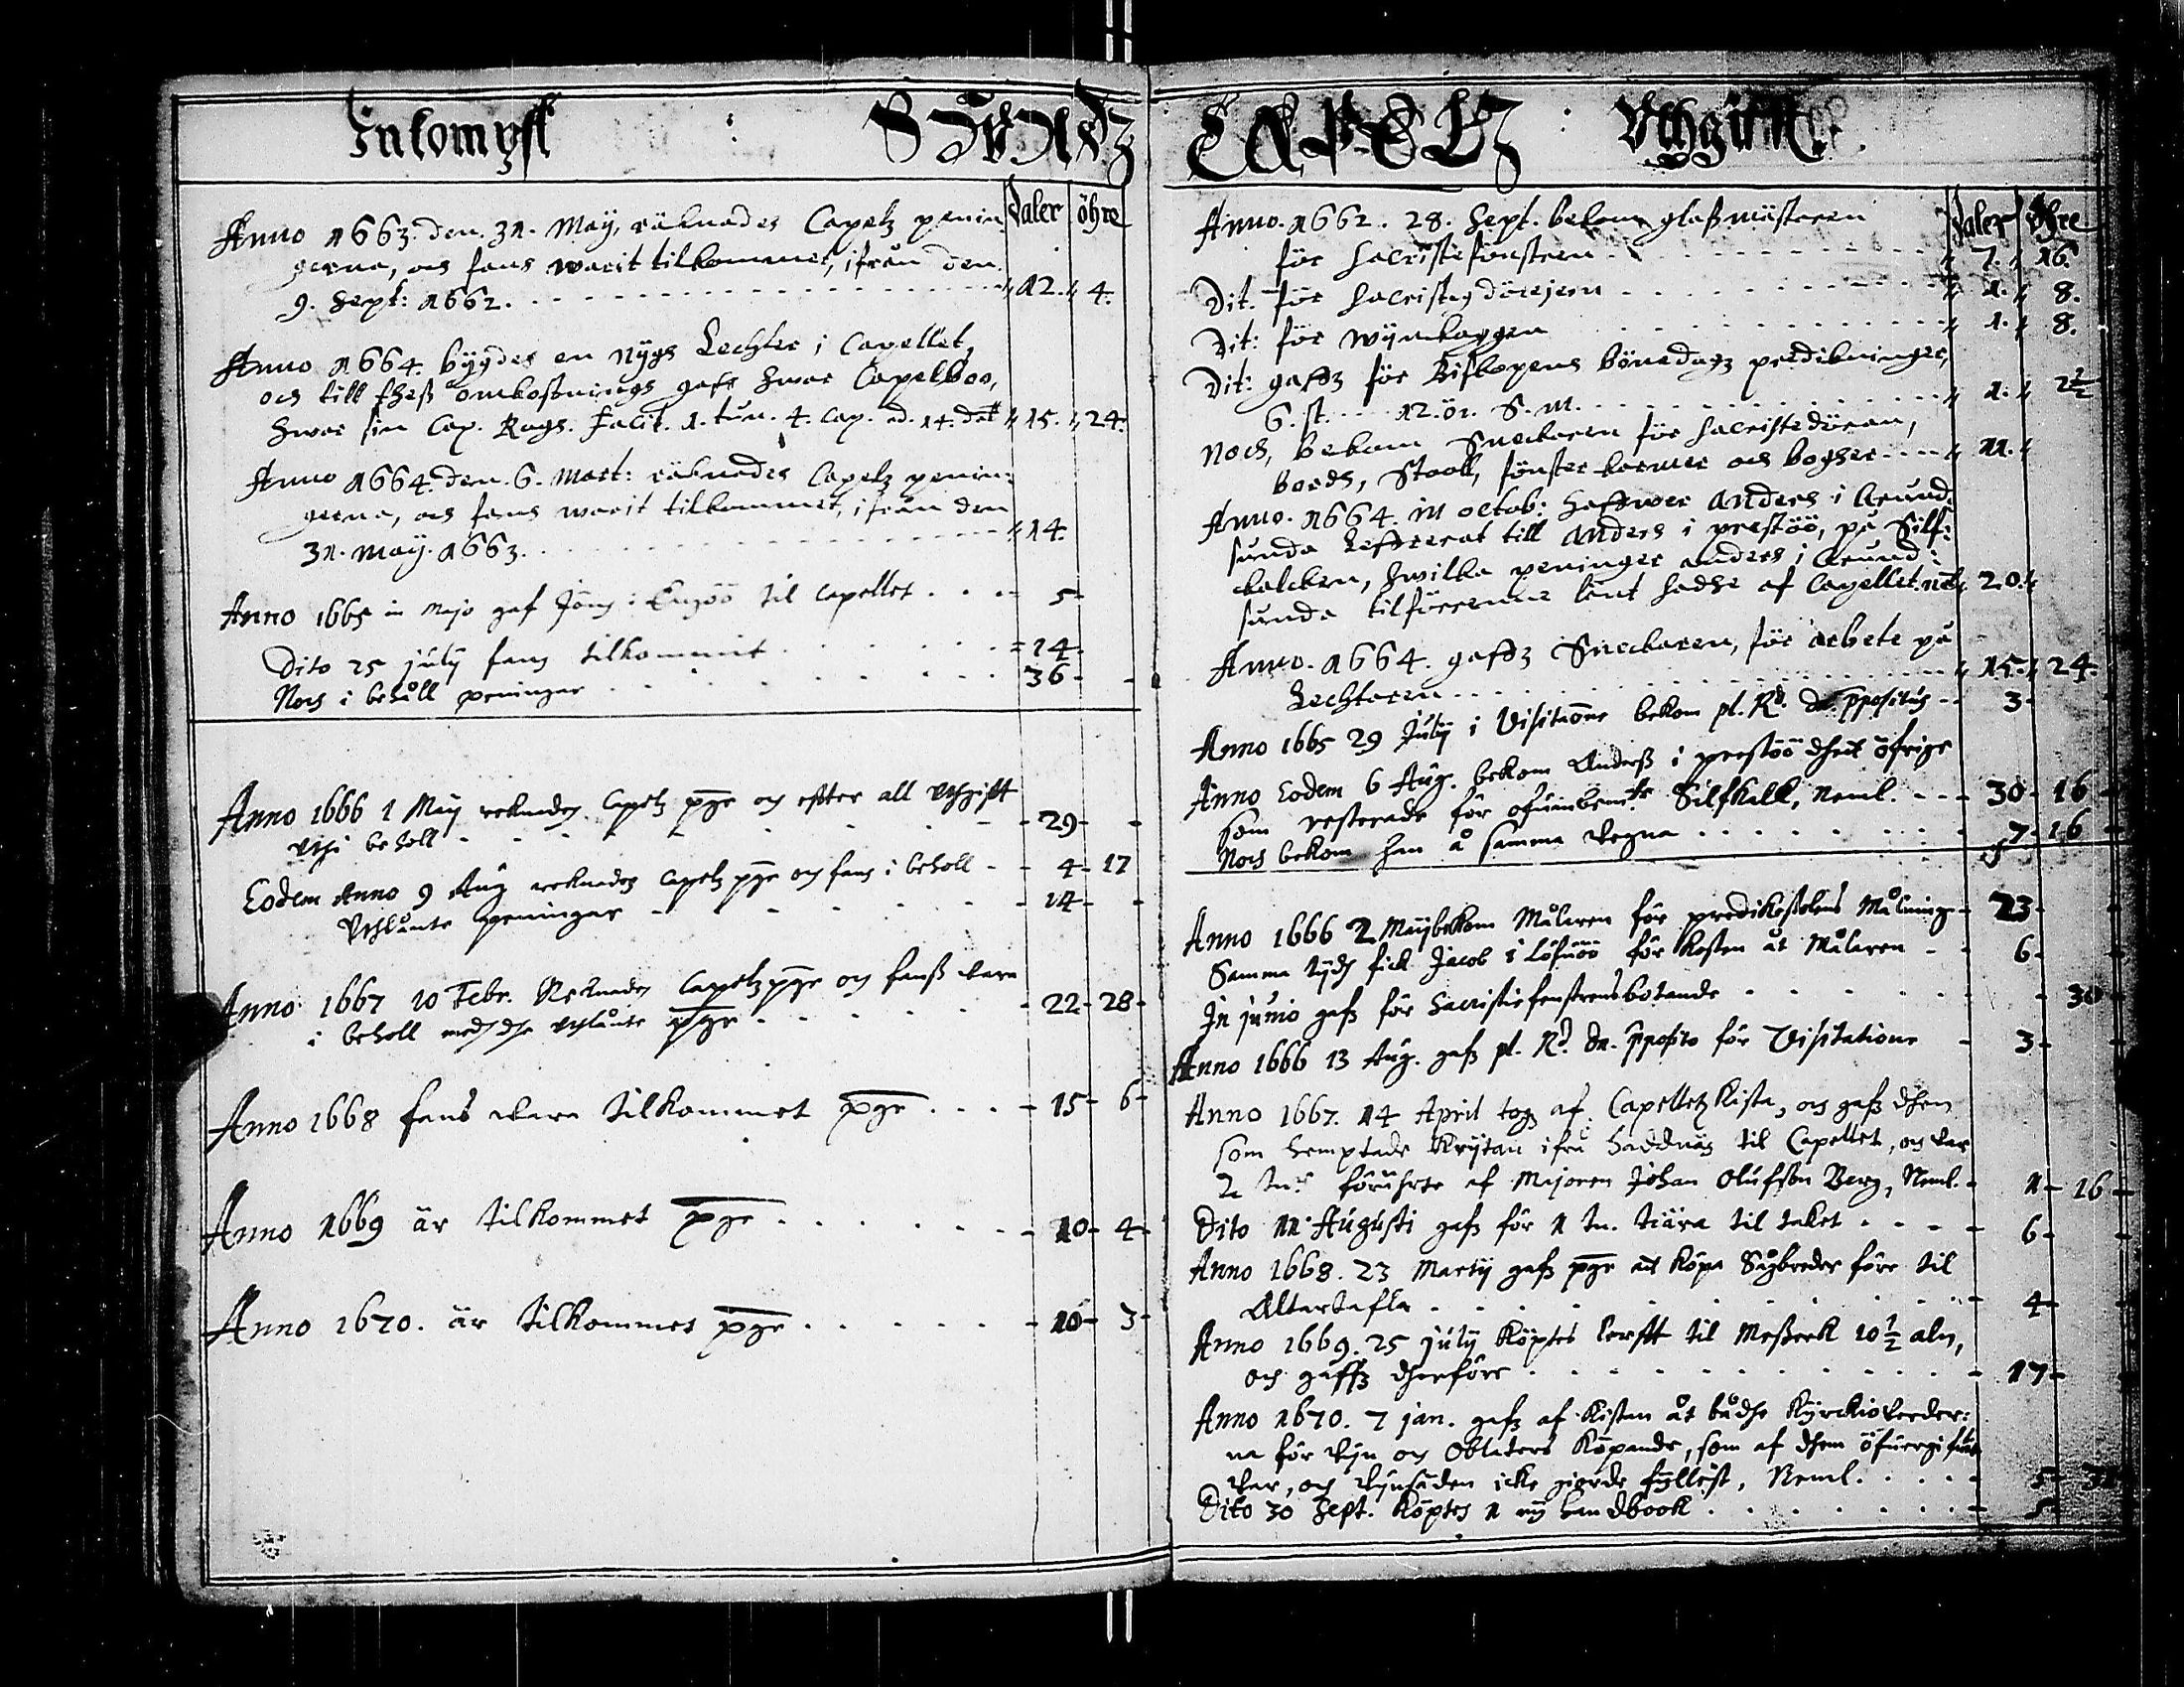 Inkompst : SIUNDZ
daler öhre
Anno 1663. den. 31. Maÿ, räknades Capelz penin
gerna, och fans warit tilkommet, ifrån den
9. Sept: 1662. 12. 4.
Anno 1664. bÿgdes en nÿgh Lechter i Capellet,
och till thesz omkostningh gaff hwar Capelboo,
hwar sin Cap. Rogh. Facit. 1. tun. 4. cap. ad. 14. 15. 24.
Anno 1664. den. 6. Mart: räknades Capelz penin:
gerna, och fans warit tilkommet, ifrån den
31. Maÿ. 1663. 14.
Anno 1665 in Majo gaf Jöns i til Capellet 5
Dito 25 julÿ fans tilkommit 14
Noch i behåll peningar 36
Anno 1666 1 Maij reknades Capelz pgr och efter all uthgifft
uthi beholl 29
Eodem Anno 9 Aug reknades Capelz pgr och fans i beholl 4 17
Uthlånte peningar 14
Anno 1667 10 Febr. Reknades Capelz pgr och fansz vara
i beholl medh dhe uthlånte pgr 22 28
Anno 1668 fans vara tilkommet pgr 15 6
Anno 1669 är tilkommet pgr 10 4
Anno 1670. är tilkommet pgr 10 3
CAPELZ : Uthgifft.
daler öhre
Anno. 1662. 28. Sept. bekom glaszmästaren
för Sacristefönstren 7. 16.
Dit. för dörejern 1. 8.
Dit: för wÿnkaggen 1. 8.
Dit: gaffz för Biskopens bönedagz predikninger,
6. st. 12. ör. S. M. 1. 2½
Noch, bekom Sneckaren för Sacristedören,
bordh, Stooll, fönster karmer och bogher 11.
Anno. 1664. in octob: haffwer Anders i Arund:
sunda Leffrerat till Anders i prestöö, på Silf:
kalcken, hwilka peninger anders i Arund:
sunda tilförenne lånt hadhe af Capellet. 20.
Anno. 1664. gaffz Sneckaren, för arbete på
Lechteren 15. 24.
Anno 1665 29 Julij i Visitatione bekom pl. Rd. dn. ppositus 3
Anno Eodem 6 Aug. bekom Andersz i prestöö dhet öfrige
som resterade för Silfkalk, Neml. 30 16
Noch bekom han å samma vegna 7 16
Anno 1666 2 Maij bekom Målaren för predikestolens Målning 23
Samma tijdh fick Jacob i för kosten åt Målaren 6
In junio gafz för Sacristiefenstrens botande 30
Anno 1666 13 Aug. gafz pl. Rd. Dn. pposito för Visitatione 3
Anno 1667. 14 April togz af Capelletz kista, och gafz dhem
som hemptade Krijtan ifrå Haddnäs til Capellet, och var
2 tnr förährte af Majoren Johan Olufson Berg, Neml. 1 16
Dito 11 Augusti gafz för 1 tn. tiära til taket 6
Anno 1668. 23 Martij gafz pgr at köpa Sågbreder före til
Altartafla 4
Anno 1669. 25 julij köptes lerfft til Messerk 10½ aln,
och gaffz dherföre 17
Anno 1670. 7 jan. gafz af kistan åt bådhe Kÿrckioverder:
na för Vijn och Oblaters köpande, som af dhem
var, och Vijnsäden icke giorde fyllest, Neml. 5
Dito 30 Sept. köptes 1 nÿ handbook 5